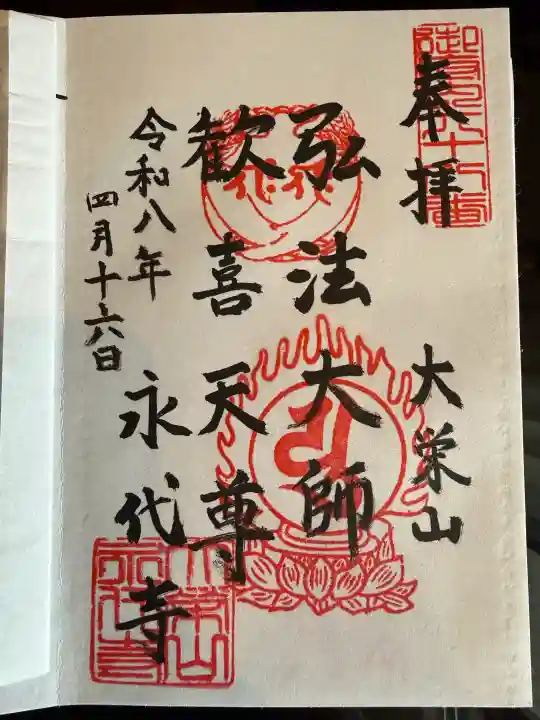 奉拝
大栄山
弘法大師
歓喜天尊
永代寺
令和八年
四月十六日